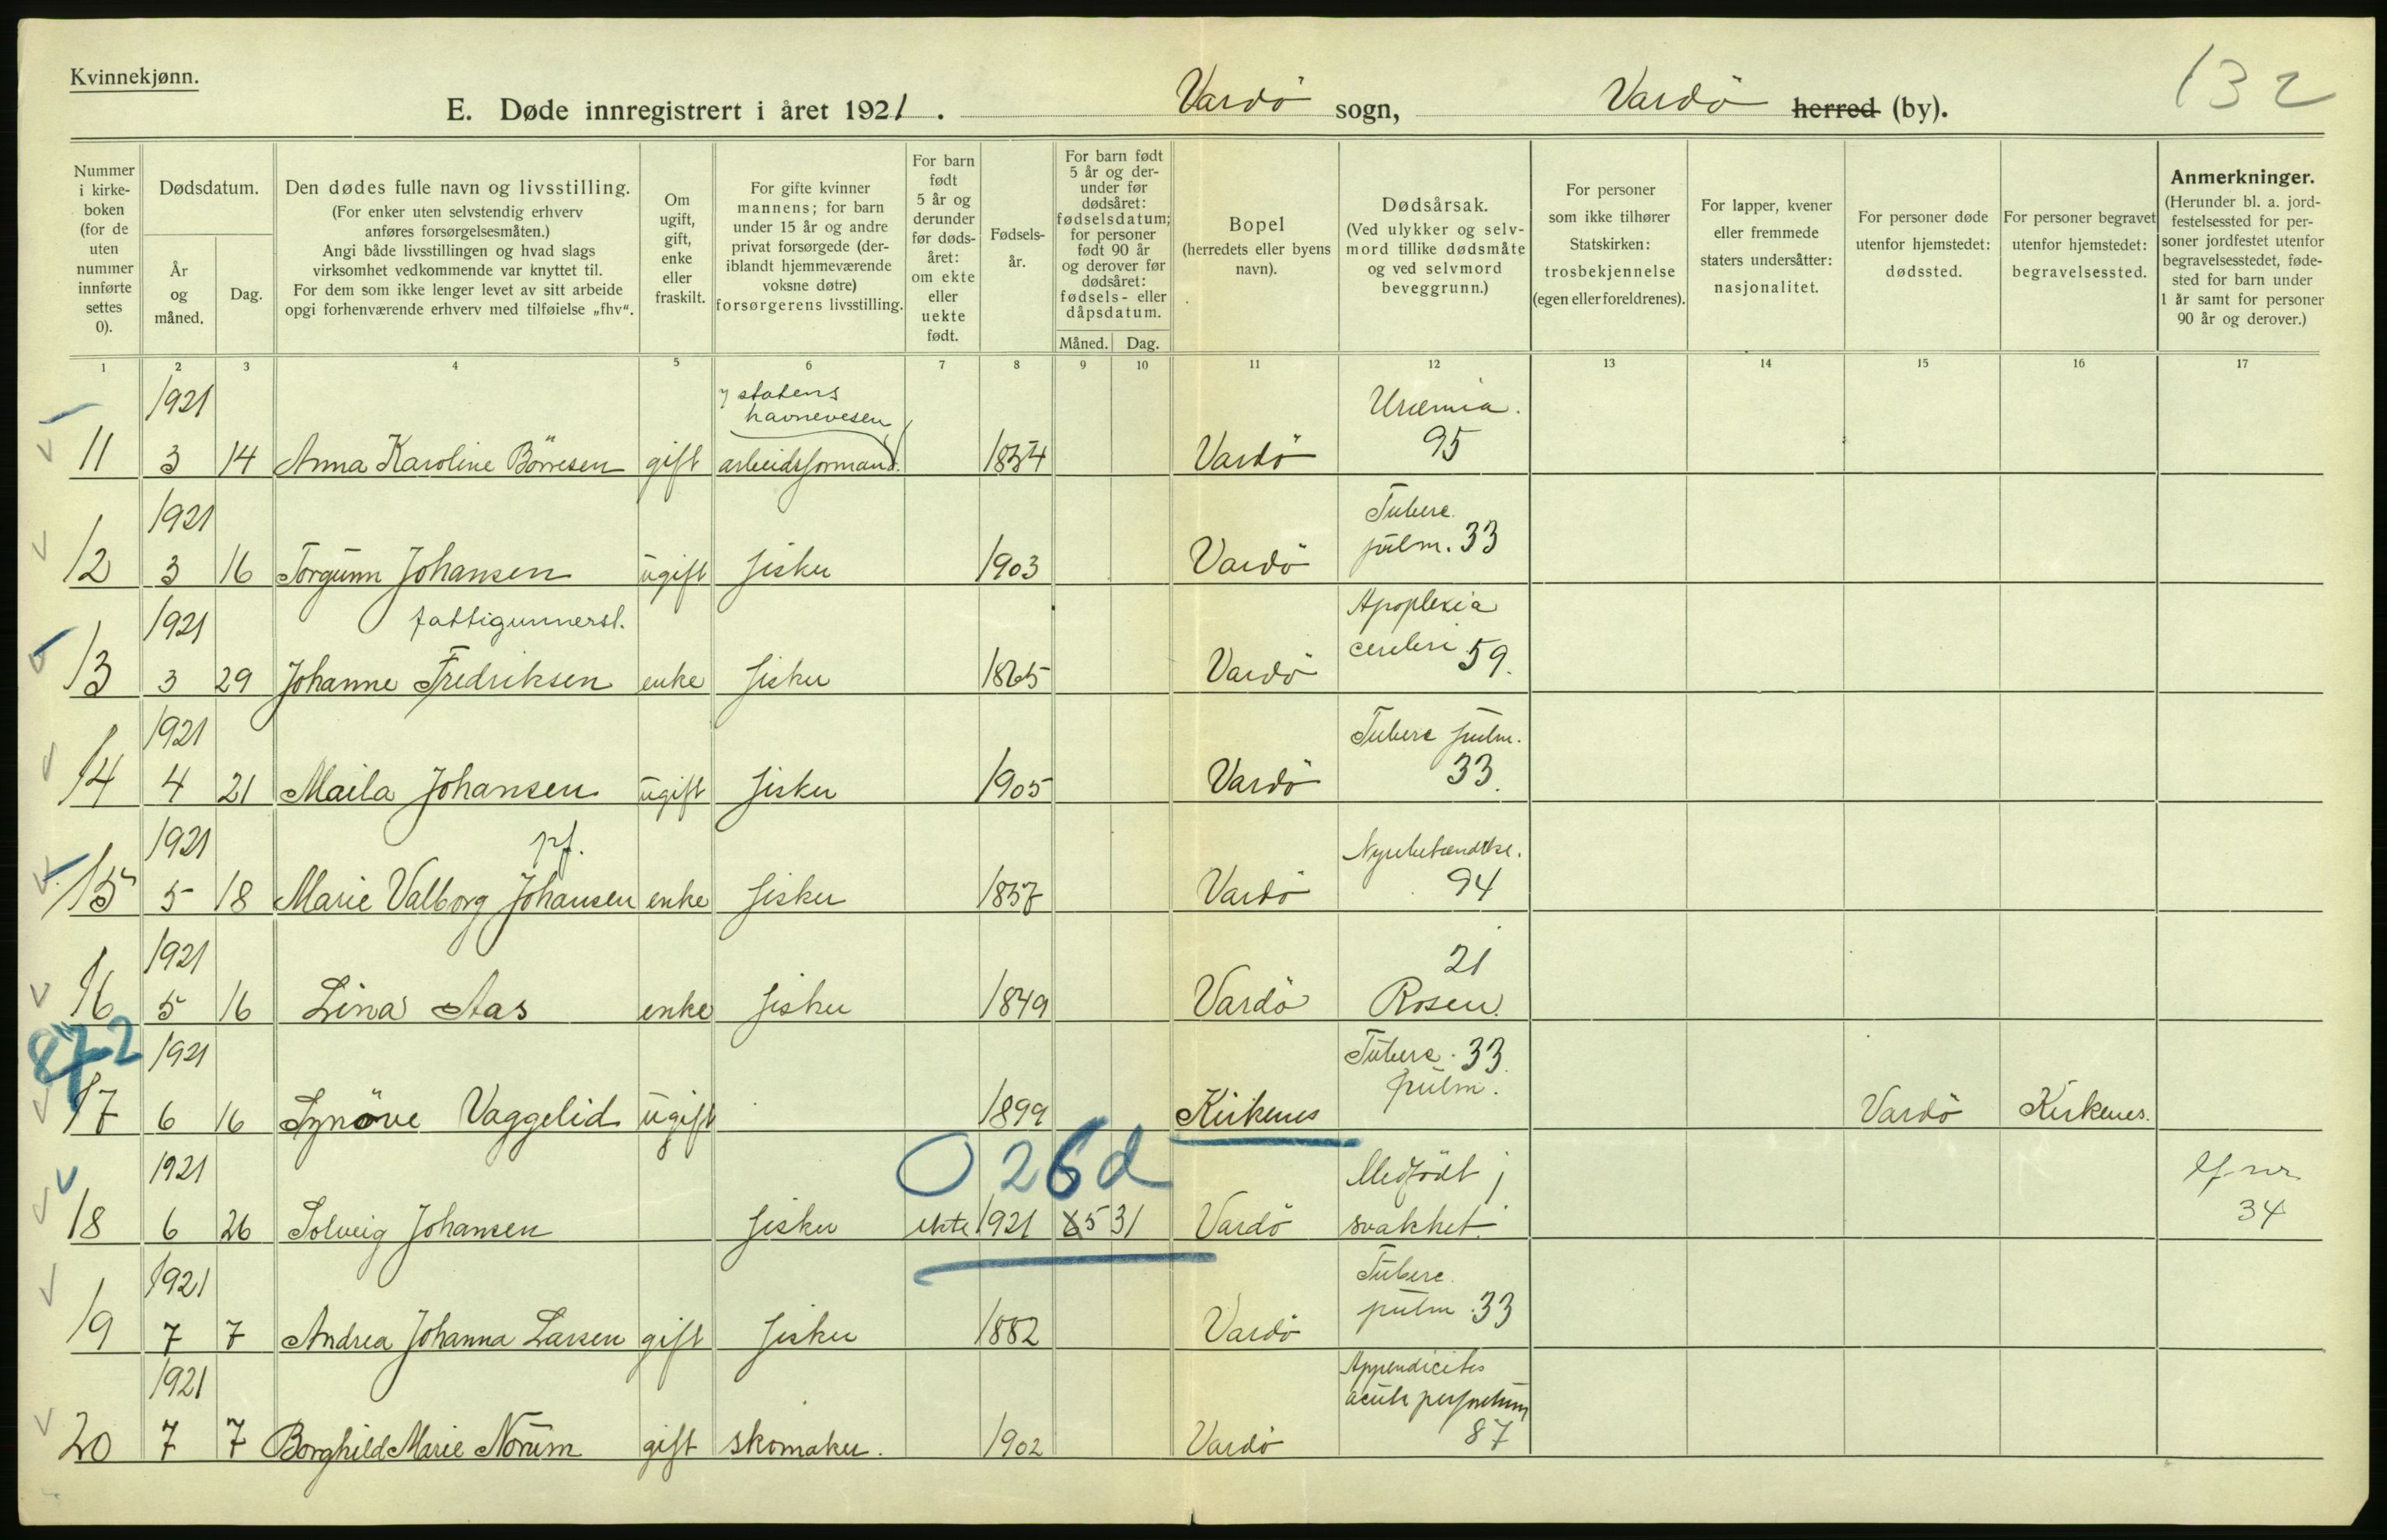 Kvinnekjønn.
132
E. Døde innregistrert i året 1921. Vardö sogn, Vardö herred (by).
Nummer i kirke-boken (for de uten nummer innførte settes 0).
Dødsdatum.
År og måned.
Dag.
Den dødes fulle navn og livsstilling.
(For enker uten selvstendig erhverv anføres forsørgelsesmåten.)
Angi både livsstillingen og hvad slags virksomhet vedkommende var knyttet til.
For dem som ikke lenger levet av sitt arbeide opgi forhenværende erhverv med tilføielse „fhv“.
Om ugift, gift, enke eller fraskilt.
For gifte kvinner mannens; for barn under 15 år og andre privat forsørgede (der-iblandt hjemmeværende voksne døtre) forsørgerens livsstilling.
For barn født 5 år og derunder før døds-året: om ekte eller uekte født.
Fødsels-år.
For barn født 5 år og der-under før dødsåret: fødselsdatum; for personer født 90 år og derover før dødsåret: fødsels- eller dåpsdatum.
Måned. Dag.
Bopel
(herredets eller byens navn).
Dødsårsak.
(Ved ulykker og selv-mord tillike dødsmåte og ved selvmord beveggrunn.)
For personer som ikke tilhører Statskirken: trosbekjennelse (egen eller foreldrenes).
For lapper, kvener eller fremmede staters undersåtter: nasjonalitet.
For personer døde utenfor hjemstedet: dødssted.
For personer begravet utenfor hjemstedet: begravelsessted.
Anmerkninger.
(Herunder bl. a. jord-festelsessted for per-soner jordfestet utenfor begravelsesstedet, føde-sted for barn under 1 år samt for personer 90 år og derover.)
1 2 3 4 5 6 7 8 9 10 11 12 13 14 15 16 17
1921 statens havnevesen Uræmia.
11 3 14 Anna Karoline Börresen gift arbeidsformand. 1854 Vardö 95
1921 Tuberc.
12 3 16 Torgunn Johansen ugift fisker 1903 Vardö pulm. 33
1921 fattigunnerst. Apoplexia
13 3 29 Johanne Fredriksen enke fisker 1865 Vardö cerebri 59.
1921 Tuberc pulm.
14 4 21 Maila Johansen ugift fisker 1905 Vardö 33.
1921 pf. Nyrebetændelse.
15 5 18 Marie Valborg Johansen enke fisker 1857 Vardö 94
1921 21
16 5 16 Lina Aas enke fisker 1849 Vardö Rosen.
872 1921 Tuberc. 33
17 6 16 Synöve Vaggelid ugift 1899 Kirkenes pulm. Vardö Kirkenes.
O 26 d
1921 Medfödt lf nr
18 6 26 Solveig Johansen fisker ekte 1921 5 31 Vardö svakhet. 34
1921 Tuberc.
19 7 7 Andrea Johanna Larsen gift fisker 1882 Vardö pulm. 33
1921 Appendicites
acuta
20 7 7 Borghild Marie Norum gift skomaker. 1902 Vardö 87